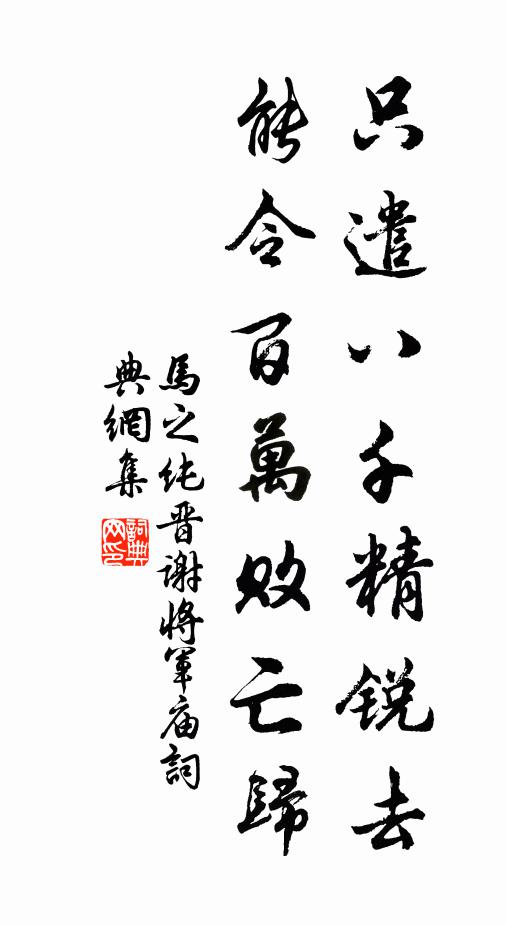 只遣八千精锐去
能令百萬敗亡歸
馬之純晋谢將軍庙詞
典網集
詞典
网印